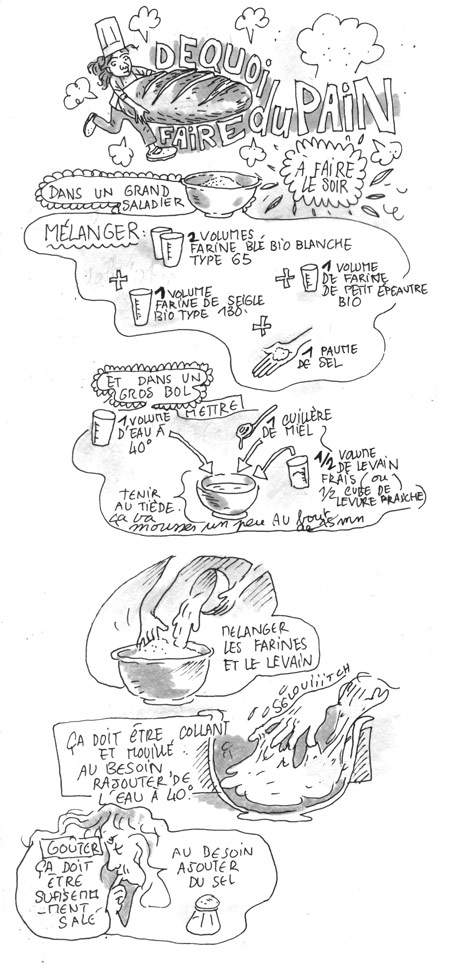 DE QUOI
FAIRE du PAIN
A FAIRE
LE SOIR
DANS UN GRAND
SALADIER
MÉLANGER:
2 VOLUMES
FARINE BLÉ BIO BLANCHE
TYPE 65
+
1 VOLUME
FARINE DE SEIGLE
BIO TYPE 130.
+
1 VOLUME
DE FARINE
DE PETIT ÉPEAUTRE
BIO
+
1 PAUME
DE SEL
ET DANS UN
GROS BOL
METTRE
1 VOLUME
D'EAU À
40°
1 CUILLÈRE
DE MIEL
1/2 VOLUME
DE LEVAIN
FRAIS (ou)
1/2 CUBE DE
LEVURE FRAICHE)
TENIR
AU TIÈDE.
ça va
mousser un peu AU bout
de 15 mn
MELANGER
LES FARINES
ET LE LEVAIN
SGLOUIIITCH
ÇA DOIT ÊTRE COLLANT
ET MOUILLÉ.
AU BESOIN
RAJOUTER DE
L'EAU À 40°.
GOÛTER
ÇA DOIT
ÊTRE
SUFISEMM
-MENT
SALÉ
AU BESOIN
AJOUTER
DU SEL